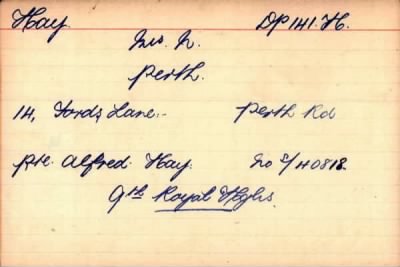 Hay. DP 141. H.
Mrs. N.
Perth.
14, Fords Lane:- Perth Rd
Pte. Alfred. Hay. No S/40818.
9th Royal Hghs.